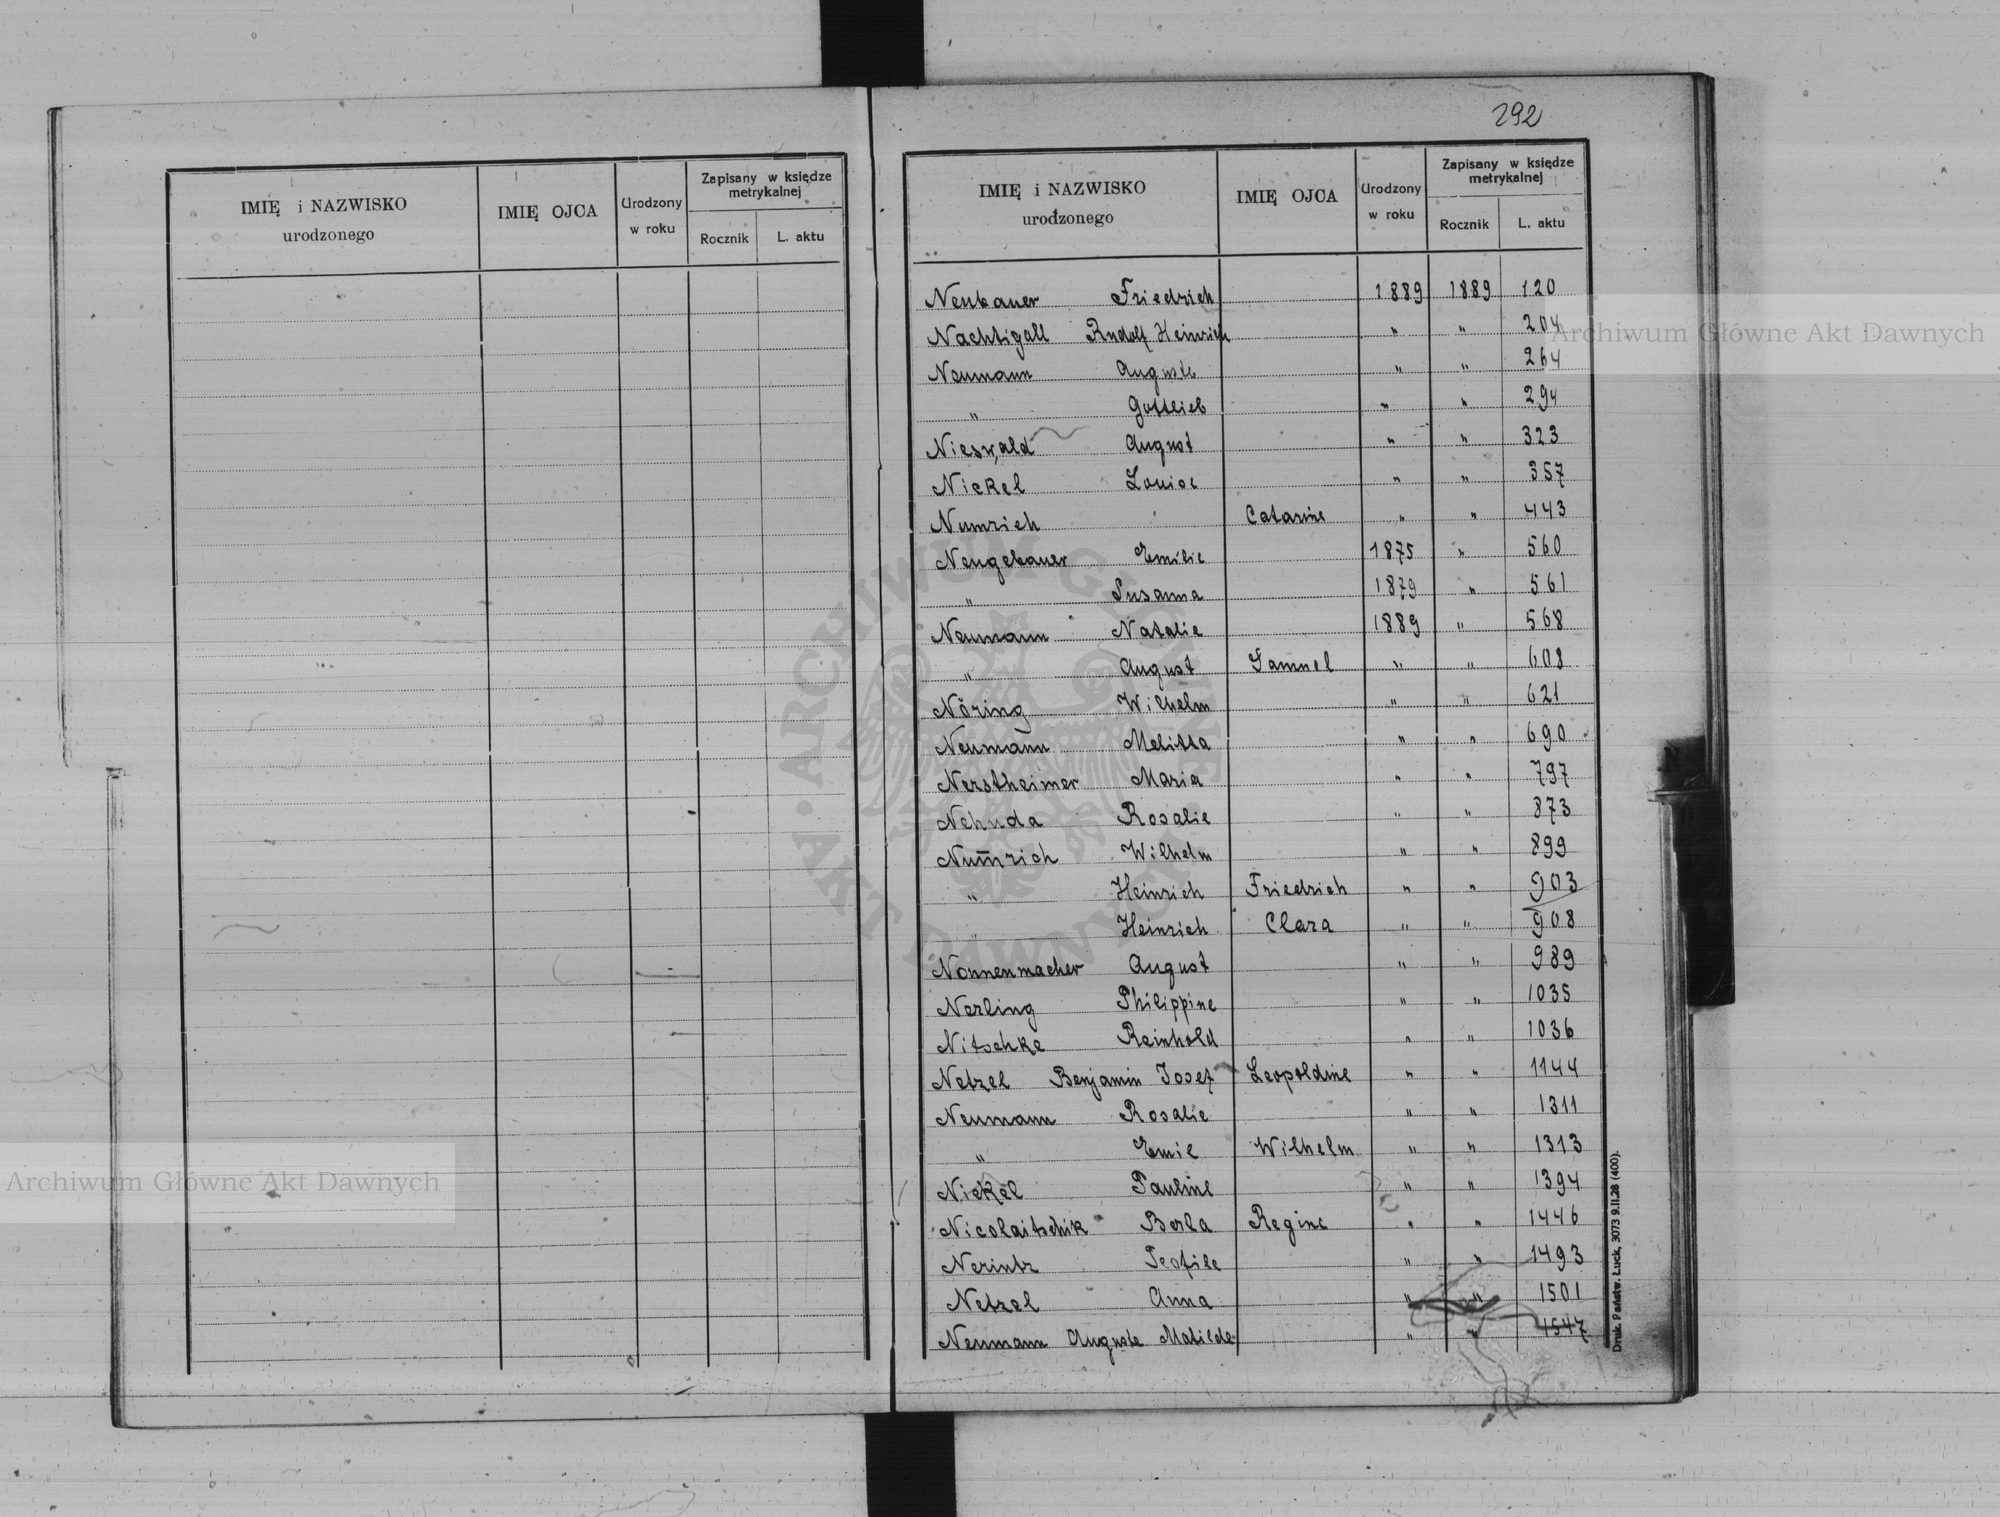 292
IMIĘ i NAZWISKO urodzonego IMIĘ OJCA Urodzony w roku Zapisany w księdze metrykalnej Rocznik L. aktu
IMIĘ i NAZWISKO urodzonego IMIĘ OJCA Urodzony w roku Zapisany w księdze metrykalnej Rocznik L. aktu
Neubauer Friedrich 1889 1889 120
Nachtigall Rudolf Heinrich " " 204
Neumann Auguste " " 264
" Gottlieb " " 294
Nieswald August " " 323
Nickel Louise " " 357
Numrich Catarine " " 443
Neugebauer Emilie 1875 " 560
" Susanna 1879 " 561
Neumann Natalie 1889 " 568
" August Samuel " " 608
Nöring Wilhelm " " 621
Neumann Melitta " " 690
Nerstheimer Maria " " 797
Nehuda Rosalie " " 873
Numrich Wilhelm " " 899
" Heinrich Friedrich " " 903
" Heinrich Clara " " 908
Nonnenmacher August " " 989
Nerling Philippine " " 1035
Nitschke Reinhold " " 1036
Netzel Benjamin Josef Leopoldine " " 1144
Neumann Rosalie " " 1311
" Emil Wilhelm " " 1313
Nickel Pauline " " 1394
Nicolaitschik Berta Regine " " 1446
Nerintz Teofile " " 1493
Netzel Anna " " 1501
Neumann Auguste Matilde " " 1547
Druk. Państw. Łuck, 3073 9.II.28 (400).
Archiwum Główne Akt Dawnych
Archiwum Główne Akt Dawnych
ARCHIWUM GŁÓWNE AKT DAWNYCH